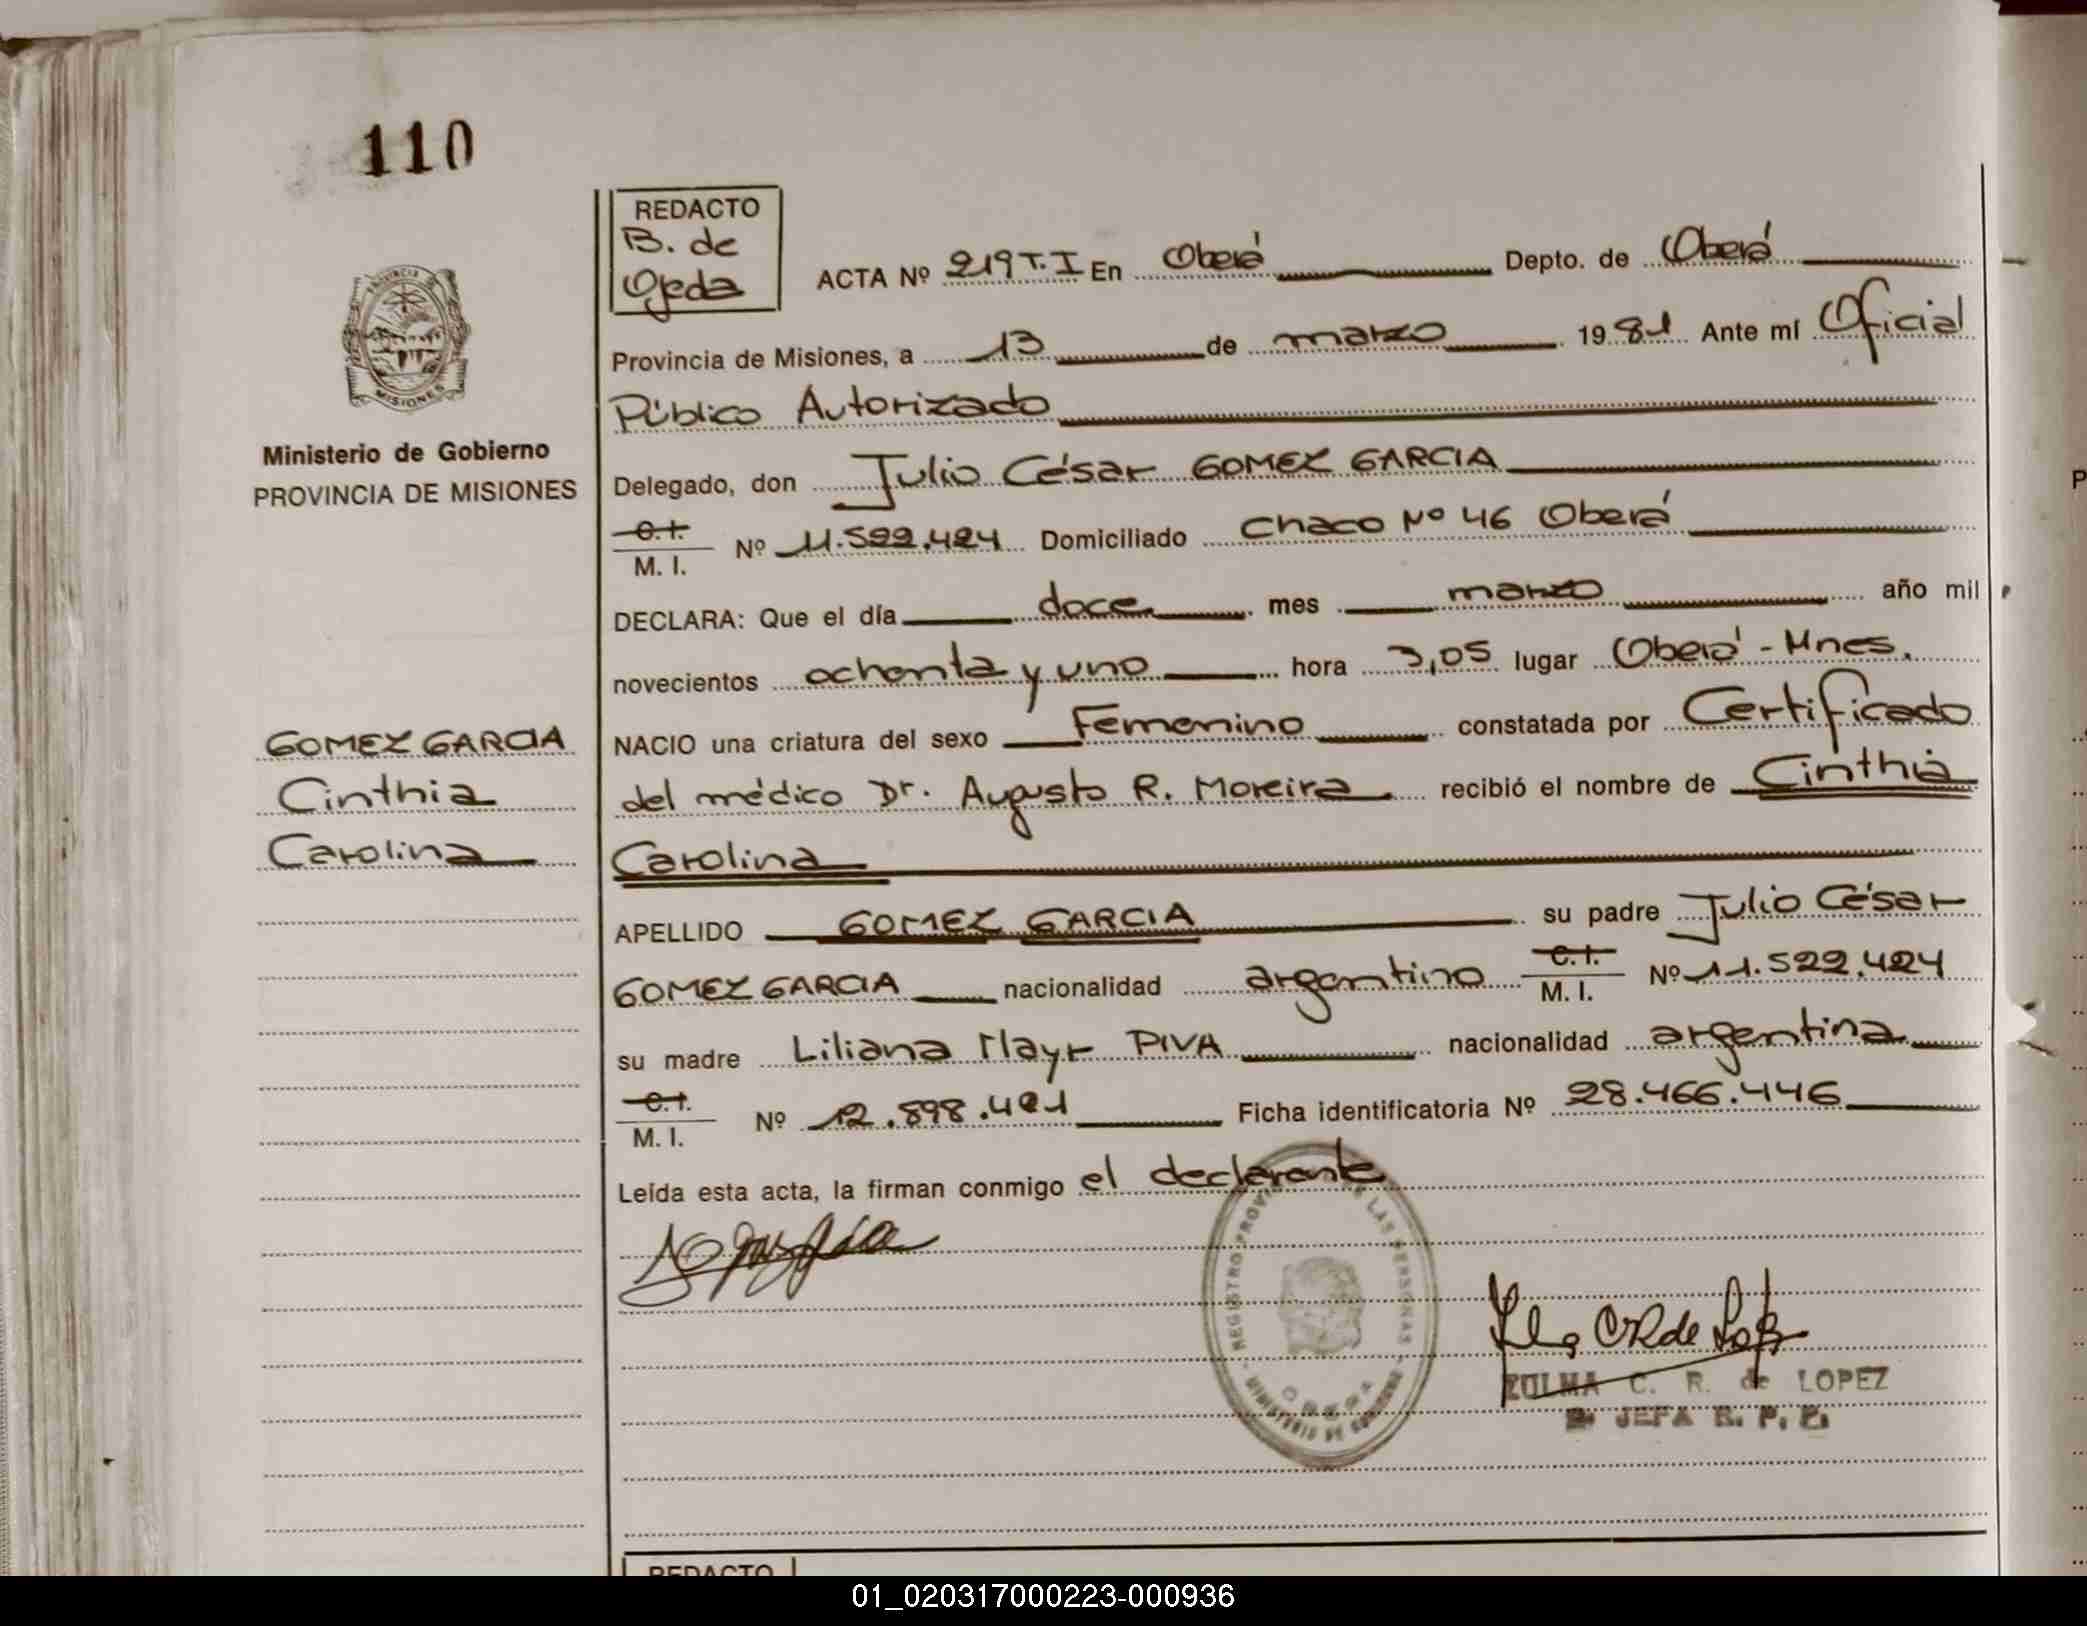 110
REDACTO
B. de
Ojeda
PROVINCIA DE
MISIONES
Ministerio de Gobierno
PROVINCIA DE MISIONES
ACTA Nº 219 T. I En Oberá Depto. de Oberá
Provincia de Misiones, a 13 de marzo 1981 Ante mí Oficial
Público Autorizado
Delegado, don Julio César GOMEZ GARCIA
C.I.
M. I. Nº 11.522.424 Domiciliado Chaco Nº 46 Oberá
DECLARA: Que el día doce mes marzo año mil
novecientos ochenta y uno hora 3,05 lugar Oberá - Mnes.
NACIO una criatura del sexo Femenino constatada por Certificado
del médico Dr. Augusto R. Moreira recibió el nombre de Cinthia
Carolina
GOMEZ GARCIA
Cinthia
Carolina
APELLIDO GOMEZ GARCIA su padre Julio César
GOMEZ GARCIA nacionalidad argentino C.I. M. I. Nº 11.522.424
su madre Liliana Mayr PIVA nacionalidad argentina
C.I.
M. I. Nº 12.898.421 Ficha identificatoria Nº 28.466.446
Leída esta acta, la firman conmigo el declarante
REGISTRO PROVINCIAL DE LAS PERSONAS
OBERA
MINISTERIO DE GOBIERNO
ZULMA C. R. de LOPEZ
JEFA R. P. P.
REDACTO
01_020317000223-000936